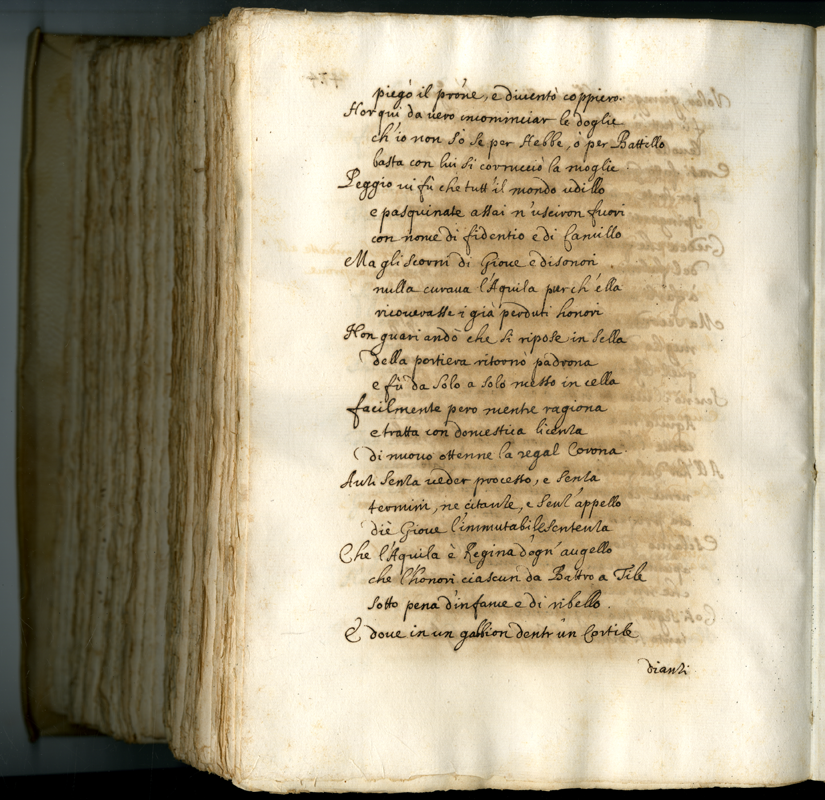 piegò il prone, e diventò coppiero.
Hor quì da vero incominciar le doglie
ch'io non sò se per Hebbe, ò per Battillo
basta con lui si corrucciò la moglie
Peggio vi fù che tutt'il mondo udillo
e pasquinate assai n'usciron fuori
con nome di fidentio e di Camillo
Ma gli scorni di Giove e disonori
nulla curava l'Aquila purch'ella
ricoverasse i già perduti honori
Non guari andò che si ripose in sella
della portiera ritornò padrona
e fù da solo a solo messo in cella
facilmente però mentre ragiona
e tratta con domestica licenza
di nuovo ottenne la regal Corona
Anzi senza veder processo, e senza
termini, ne citanze, e senz'appello
diè Giove l'immutabil sentenza
Che l'Aquila è Regina d'ogn'augello
che l'honori ciascun da Battro a Tile
sotto pena d'infame e di ribello.
E dove in un gallion dentr'un Cortile
dianzi